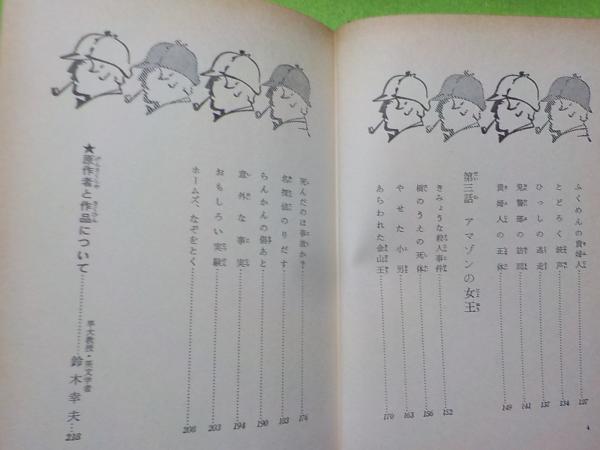 ふくめんの貴婦人 127
とどろく銃声 134
ひっしの逃走 137
鬼警部の訪問 141
貴婦人の正体 149
第三話 アマゾンの女王
きみょうな殺人事件 152
橋のうえの死体 156
やせた小男 163
あらわれた金山王 170
4
死んだのは事故か 176
名探偵のりだす 183
らんかんの傷あと 190
意外な事実 194
おもしろい実験 203
ホームズ、なぞをとく 208
★原作者と作品について
早大教授・英文学者 鈴木幸夫 218